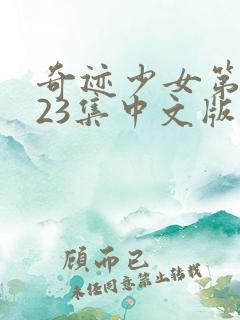 奇迹少女第
23集中文版
顾而已
未经同意禁止转载